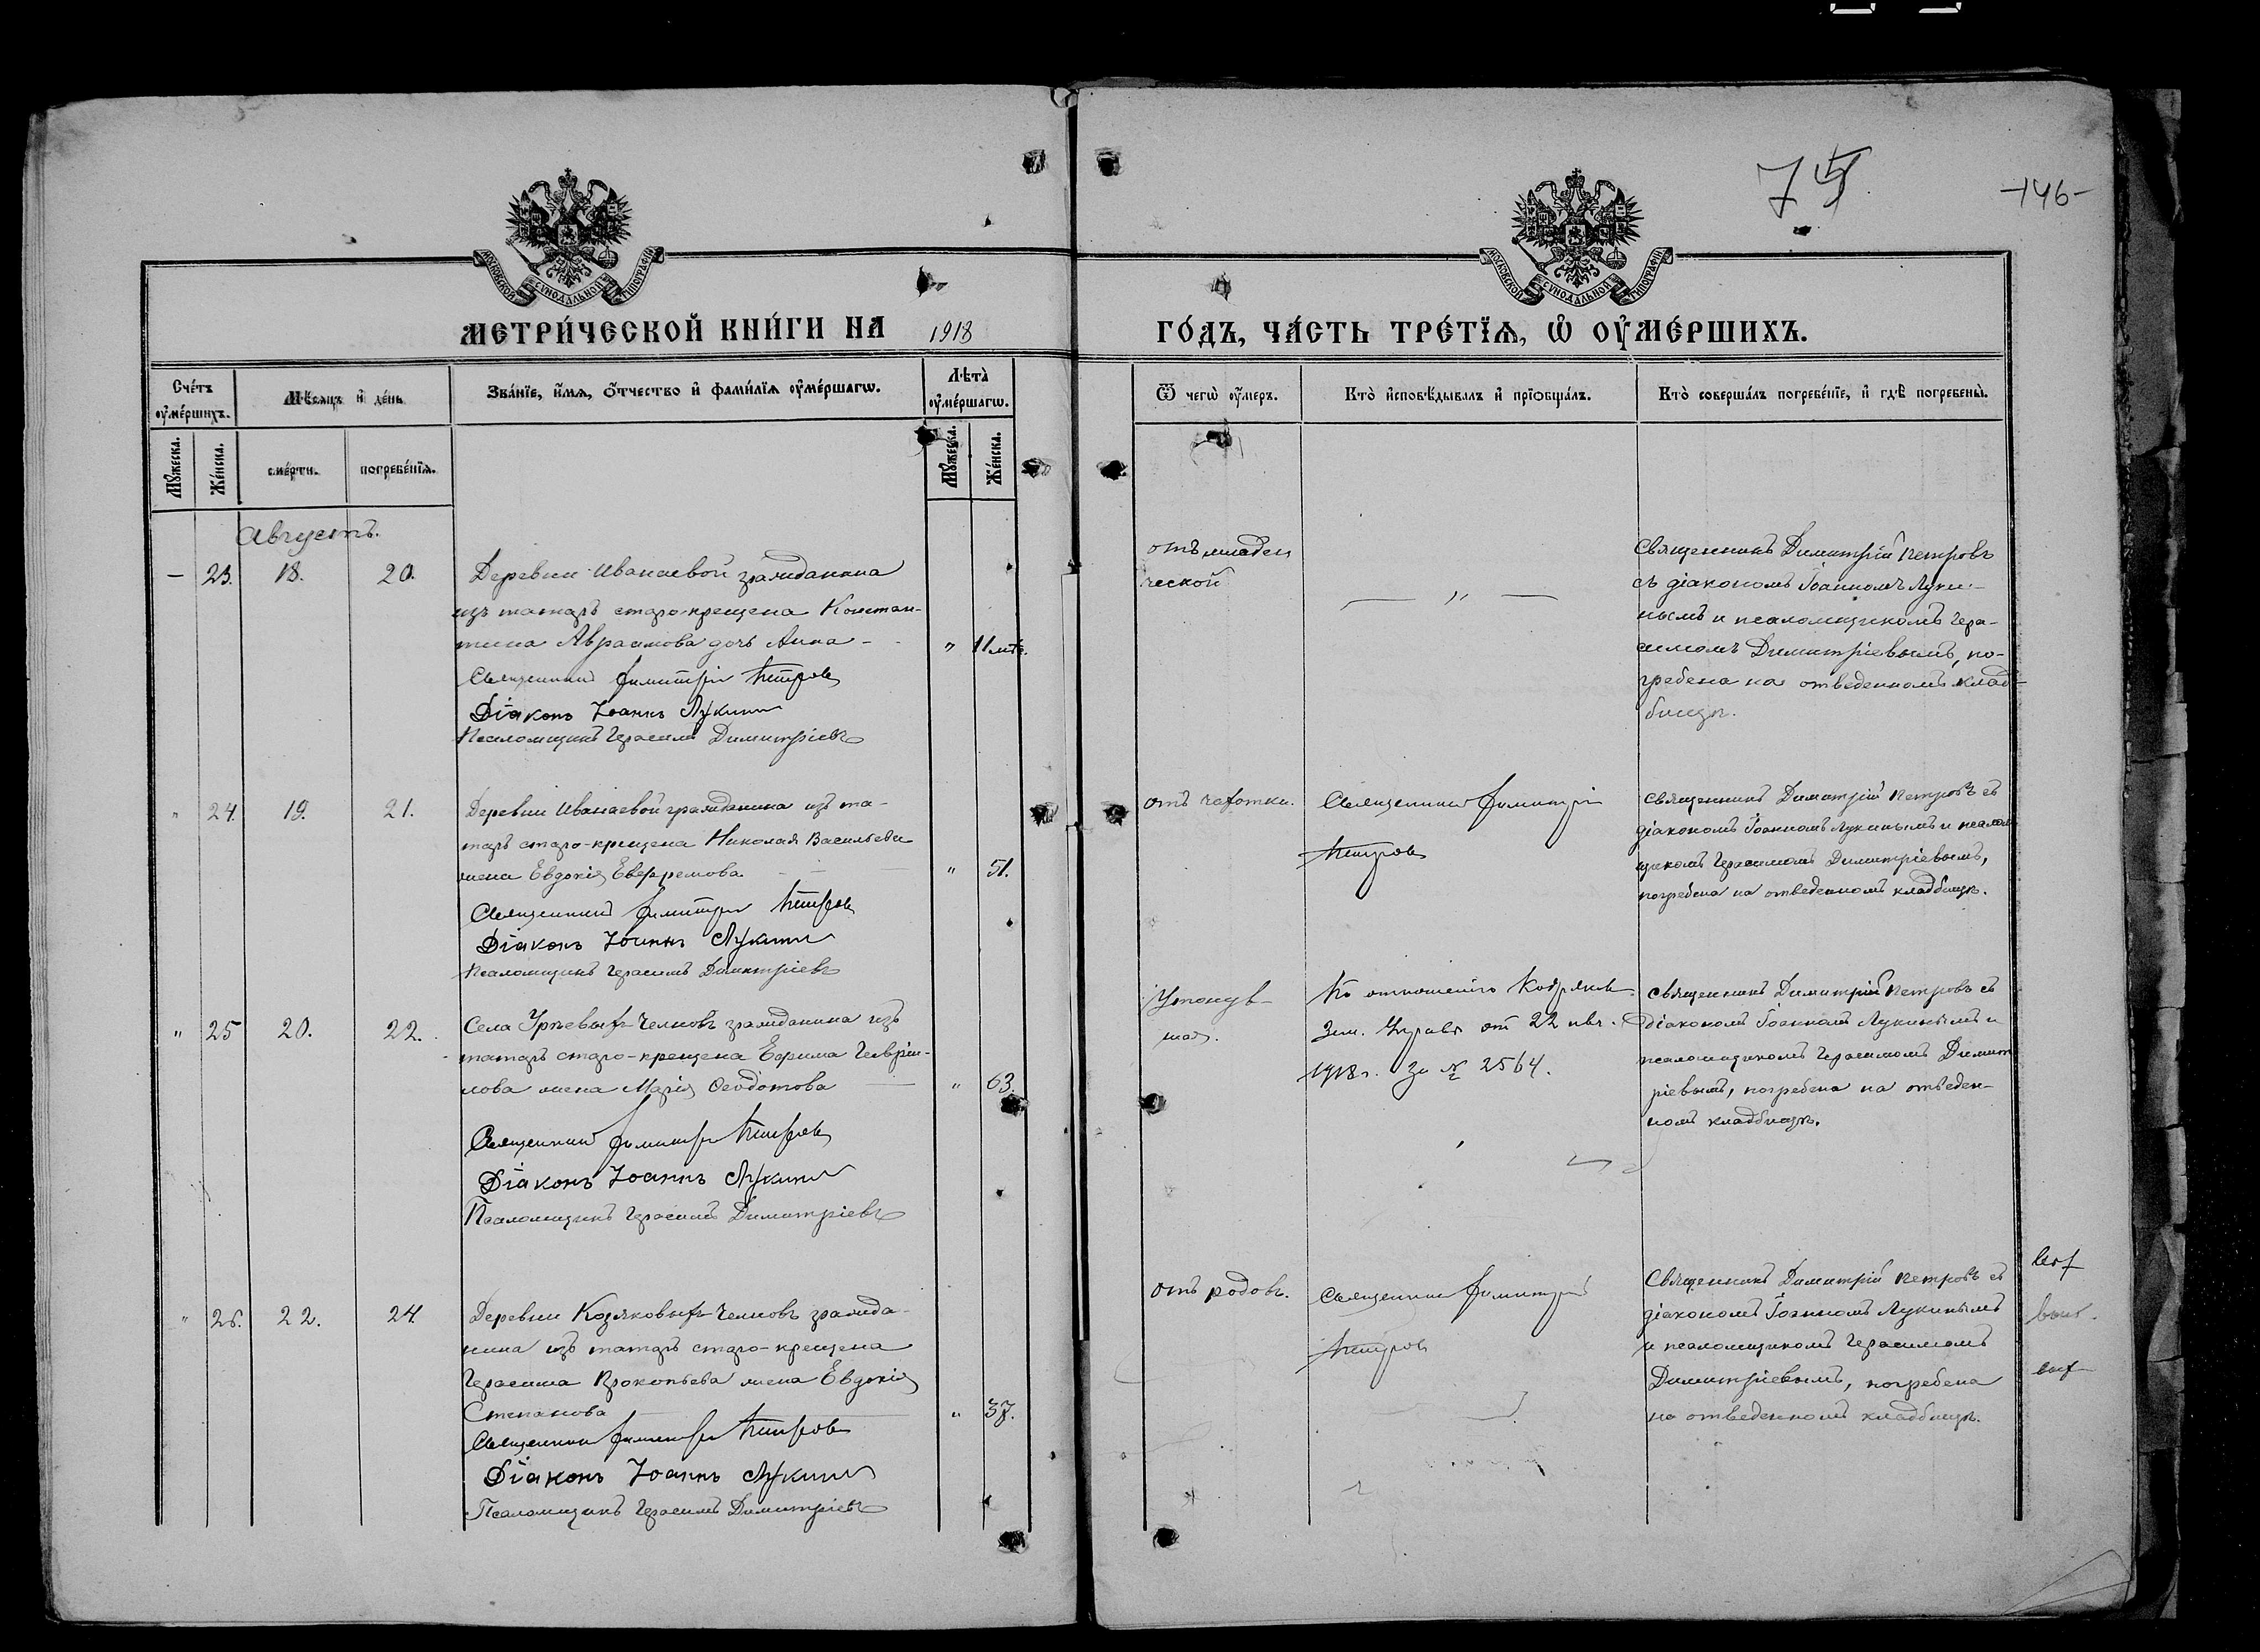 75
-146-
МОСКОВСКОЙ СУНОДАЛЬНОЙ ТИПОГРАФІИ
МОСКОВСКОЙ СУНОДАЛЬНОЙ ТИПОГРАФІИ
МЕТРИ́ЧЕСКОЙ КНИ́ГИ НА 1918 ГО́ДЪ, ЧА́СТЬ ТРЕ́ТЇѦ, Ѡ҆ ОУ҆МЕ́РШИХЪ.
Сче́тъ оу҆ме́ршихъ.
Мѣ́сяцъ и҆ де́нь
Зва́нїе, и҆́мѧ, ѻ҆́тчество и҆ фами́лїѧ оу҆ме́ршагѡ.
Лѣта̀ оу҆ме́ршагѡ.
Ѿ чегѡ̀ оу҆́меръ.
Кто̀ и҆сповѣ́дывалъ и҆ прїѡбща́лъ.
Кто̀ соверша́лъ погребе́нїе, и҆ гдѣ̀ погребены̀.
Мꙋ́жеска.
Же́нска.
сме́рти.
погребе́нїѧ.
Мꙋ́жеска.
Же́нска.
Августъ.
— 23. 18. 20.
Деревни Иванаевой гражданина
изъ татаръ старо-крещена Констан-
тина Авраамова дочь Анна -
" 11 мѣс.
Священникъ Димитрій Петровъ
Діаконъ Іоаннъ Лукинъ
Псаломщикъ Герасимъ Димитріевъ
отъ младен
ческой
— " —
Священникъ Димитрій Петровъ
съ діакономъ Іоанномъ Луки-
нымъ и псаломщикомъ Гера-
симомъ Димитріевымъ, по-
гребена на отведенномъ клад-
бищѣ.
" 24. 19. 21.
Деревни Иванаевой гражданина изъ та-
таръ старо-крещена Николая Васильева
жена Евдокія Евфремова
" 51.
Священникъ Димитрій Петровъ
Діаконъ Іоаннъ Лукинъ
Псаломщикъ Герасимъ Димитріевъ
отъ чахотки.
Священникъ Димитрій
Петровъ
Священникъ Димитрій Петровъ съ
діакономъ Іоанномъ Лукинымъ и псалом
щикомъ Герасимомъ Димитріевымъ,
погребена на отведенномъ кладбищѣ.
" 25 20. 22.
Села Урѣевыхъ-Челновъ гражданина изъ
татаръ старо-крещена Ефрима Гаврiи-
лова жена Марія Ѳеодотова
" 63.
Священникъ Димитрій Петровъ
Діаконъ Іоаннъ Лукинъ
Псаломщикъ Герасимъ Димитріевъ
Утонув-
шая.
По отношенію
Зем. Управы от 22 авг.
1918 г. За № 2564.
Священникъ Димитрій Петровъ съ
діакономъ Іоанномъ Лукинымъ и
псаломщикомъ Герасимомъ Димит
ріевымъ, погребена на отведен-
номъ кладбищѣ.
" 26. 22. 24.
Деревни Козяковыхъ-Челновъ гражда-
нина изъ татаръ старо-крещена
Герасима Прокопьева жена Евдокія
Степанова
" 37.
Священникъ Димитрій Петровъ
Діаконъ Іоаннъ Лукинъ
Псаломщикъ Герасимъ Димитріевъ
отъ родовъ.
Священникъ Димитрій
Петровъ
Священникъ Димитрій Петровъ съ
діакономъ Іоанномъ Лукинымъ
и псаломщикомъ Герасимомъ
Димитріевымъ, погребена
на отведенномъ кладбищѣ.